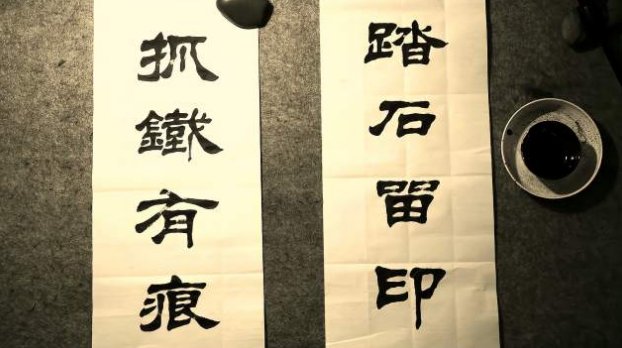 踏石留印
抓鐵有痕